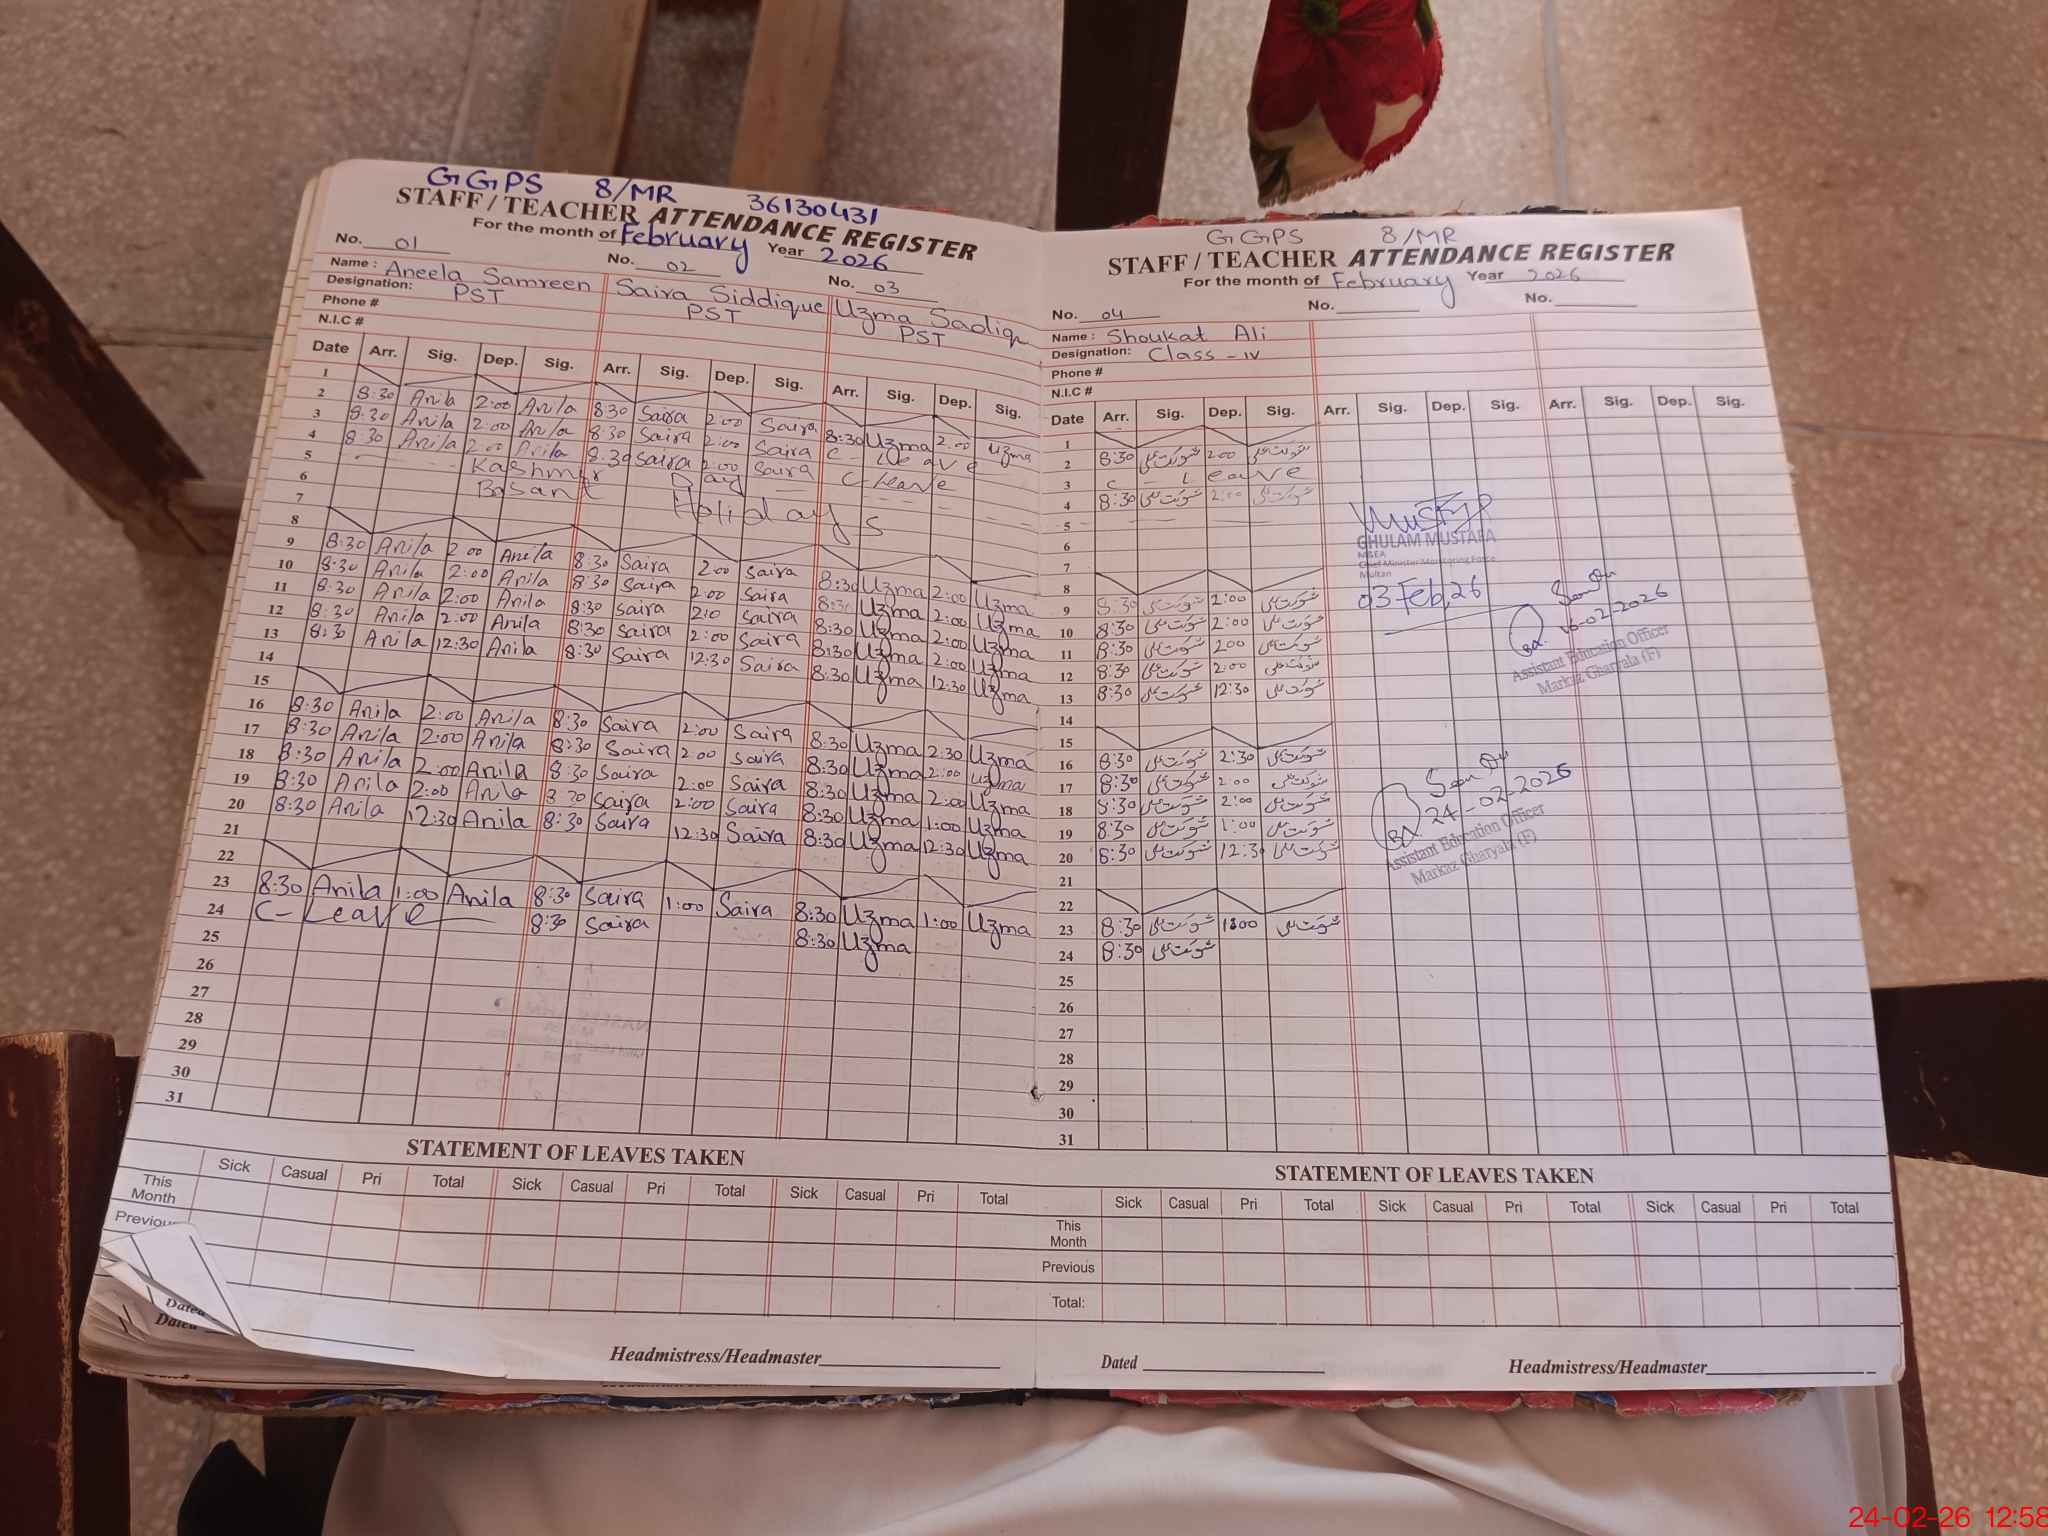 GGPS 8/MR 36130431
STAFF / TEACHER ATTENDANCE REGISTER
For the month of February Year 2026
No. 01 No. 02 No. 03
Name: Aneela Samreen Saira Siddique Uzma Sadiq
Designation: PST PST PST
Phone #
N.I.C #
Date Arr. Sig. Dep. Sig. Arr. Sig. Dep. Sig. Arr. Sig. Dep. Sig.
1
2 8:30 Anila 2:00 Anila 8:30 Saira 2:00 Saira 8:30 Uzma 2:00 Uzma
3 8:30 Anila 2:00 Anila 8:30 Saira 2:00 Saira C- Leave
4 8:30 Anila 2:00 Anila 8:30 Saira 2:00 Saira C- Leave
5 Kashmir Day
6 Basant Holidays
7
8
9 8:30 Anila 2:00 Anila 8:30 Saira 2:00 Saira 8:30 Uzma 2:00 Uzma
10 8:30 Anila 2:00 Anila 8:30 Saira 2:00 Saira 8:30 Uzma 2:00 Uzma
11 8:30 Anila 2:00 Anila 8:30 Saira 2:0 Saira 8:30 Uzma 2:00 Uzma
12 8:30 Anila 2:00 Anila 8:30 Saira 2:00 Saira 8:30 Uzma 2:00 Uzma
13 8:30 Anila 12:30 Anila 8:30 Saira 12:30 Saira 8:30 Uzma 12:30 Uzma
14
15
16 8:30 Anila 2:00 Anila 8:30 Saira 2:00 Saira 8:30 Uzma 2:30 Uzma
17 8:30 Anila 2:00 Anila 8:30 Saira 2:00 Saira 8:30 Uzma 2:00 Uzma
18 8:30 Anila 2:00 Anila 8:30 Saira 2:00 Saira 8:30 Uzma 2:00 Uzma
19 8:30 Anila 2:00 Anila 8:30 Saira 2:00 Saira 8:30 Uzma 1:00 Uzma
20 8:30 Anila 12:30 Anila 8:30 Saira 12:30 Saira 8:30 Uzma 12:30 Uzma
21
22
23 8:30 Anila 1:00 Anila 8:30 Saira 1:00 Saira 8:30 Uzma 1:00 Uzma
24 C- Leave 8:30 Saira 8:30 Uzma
25
26
27
28
29
30
31
STATEMENT OF LEAVES TAKEN
Sick Casual Pri Total Sick Casual Pri Total Sick Casual Pri Total
This Month
Previous
Dated
Dated
Headmistress/Headmaster
GGPS 8/MR
STAFF / TEACHER ATTENDANCE REGISTER
For the month of February Year 2026
No. 04 No. No.
Name: Shoukat Ali
Designation: Class - IV
Phone #
N.I.C #
Date Arr. Sig. Dep. Sig. Arr. Sig. Dep. Sig. Arr. Sig. Dep. Sig.
1
2 8:30 شوکت علی 2:00 شوکت علی
3 C - Leave
4 8:30 شوکت علی 2:00 شوکت علی
5
6
7
8
9 8:30 شوکت علی 2:00 شوکت علی
10 8:30 شوکت علی 2:00 شوکت علی
11 8:30 شوکت علی 2:00 شوکت علی
12 8:30 شوکت علی 2:00 شوکت علی
13 8:30 شوکت علی 12:30 شوکت علی
14
15
16 8:30 شوکت علی 2:30 شوکت علی
17 8:30 شوکت علی 2:00 شوکت علی
18 8:30 شوکت علی 2:00 شوکت علی
19 8:30 شوکت علی 1:00 شوکت علی
20 8:30 شوکت علی 12:3 شوکت علی
21
22
23 8:30 شوکت علی 1:00 شوکت علی
24 8:30 شوکت علی
25
26
27
28
29
30
31
GHULAM MUSTAFA
MEA
Chief Minister Monitoring Force
Multan
03 Feb, 26
10-02-2026
Assistant Education Officer
Markaz Gharyala (F)
24-02-2026
Assistant Education Officer
Markaz Gharyala (F)
STATEMENT OF LEAVES TAKEN
Sick Casual Pri Total Sick Casual Pri Total Sick Casual Pri Total
This Month
Previous
Total:
Dated
Headmistress/Headmaster
24-02-26 12:58